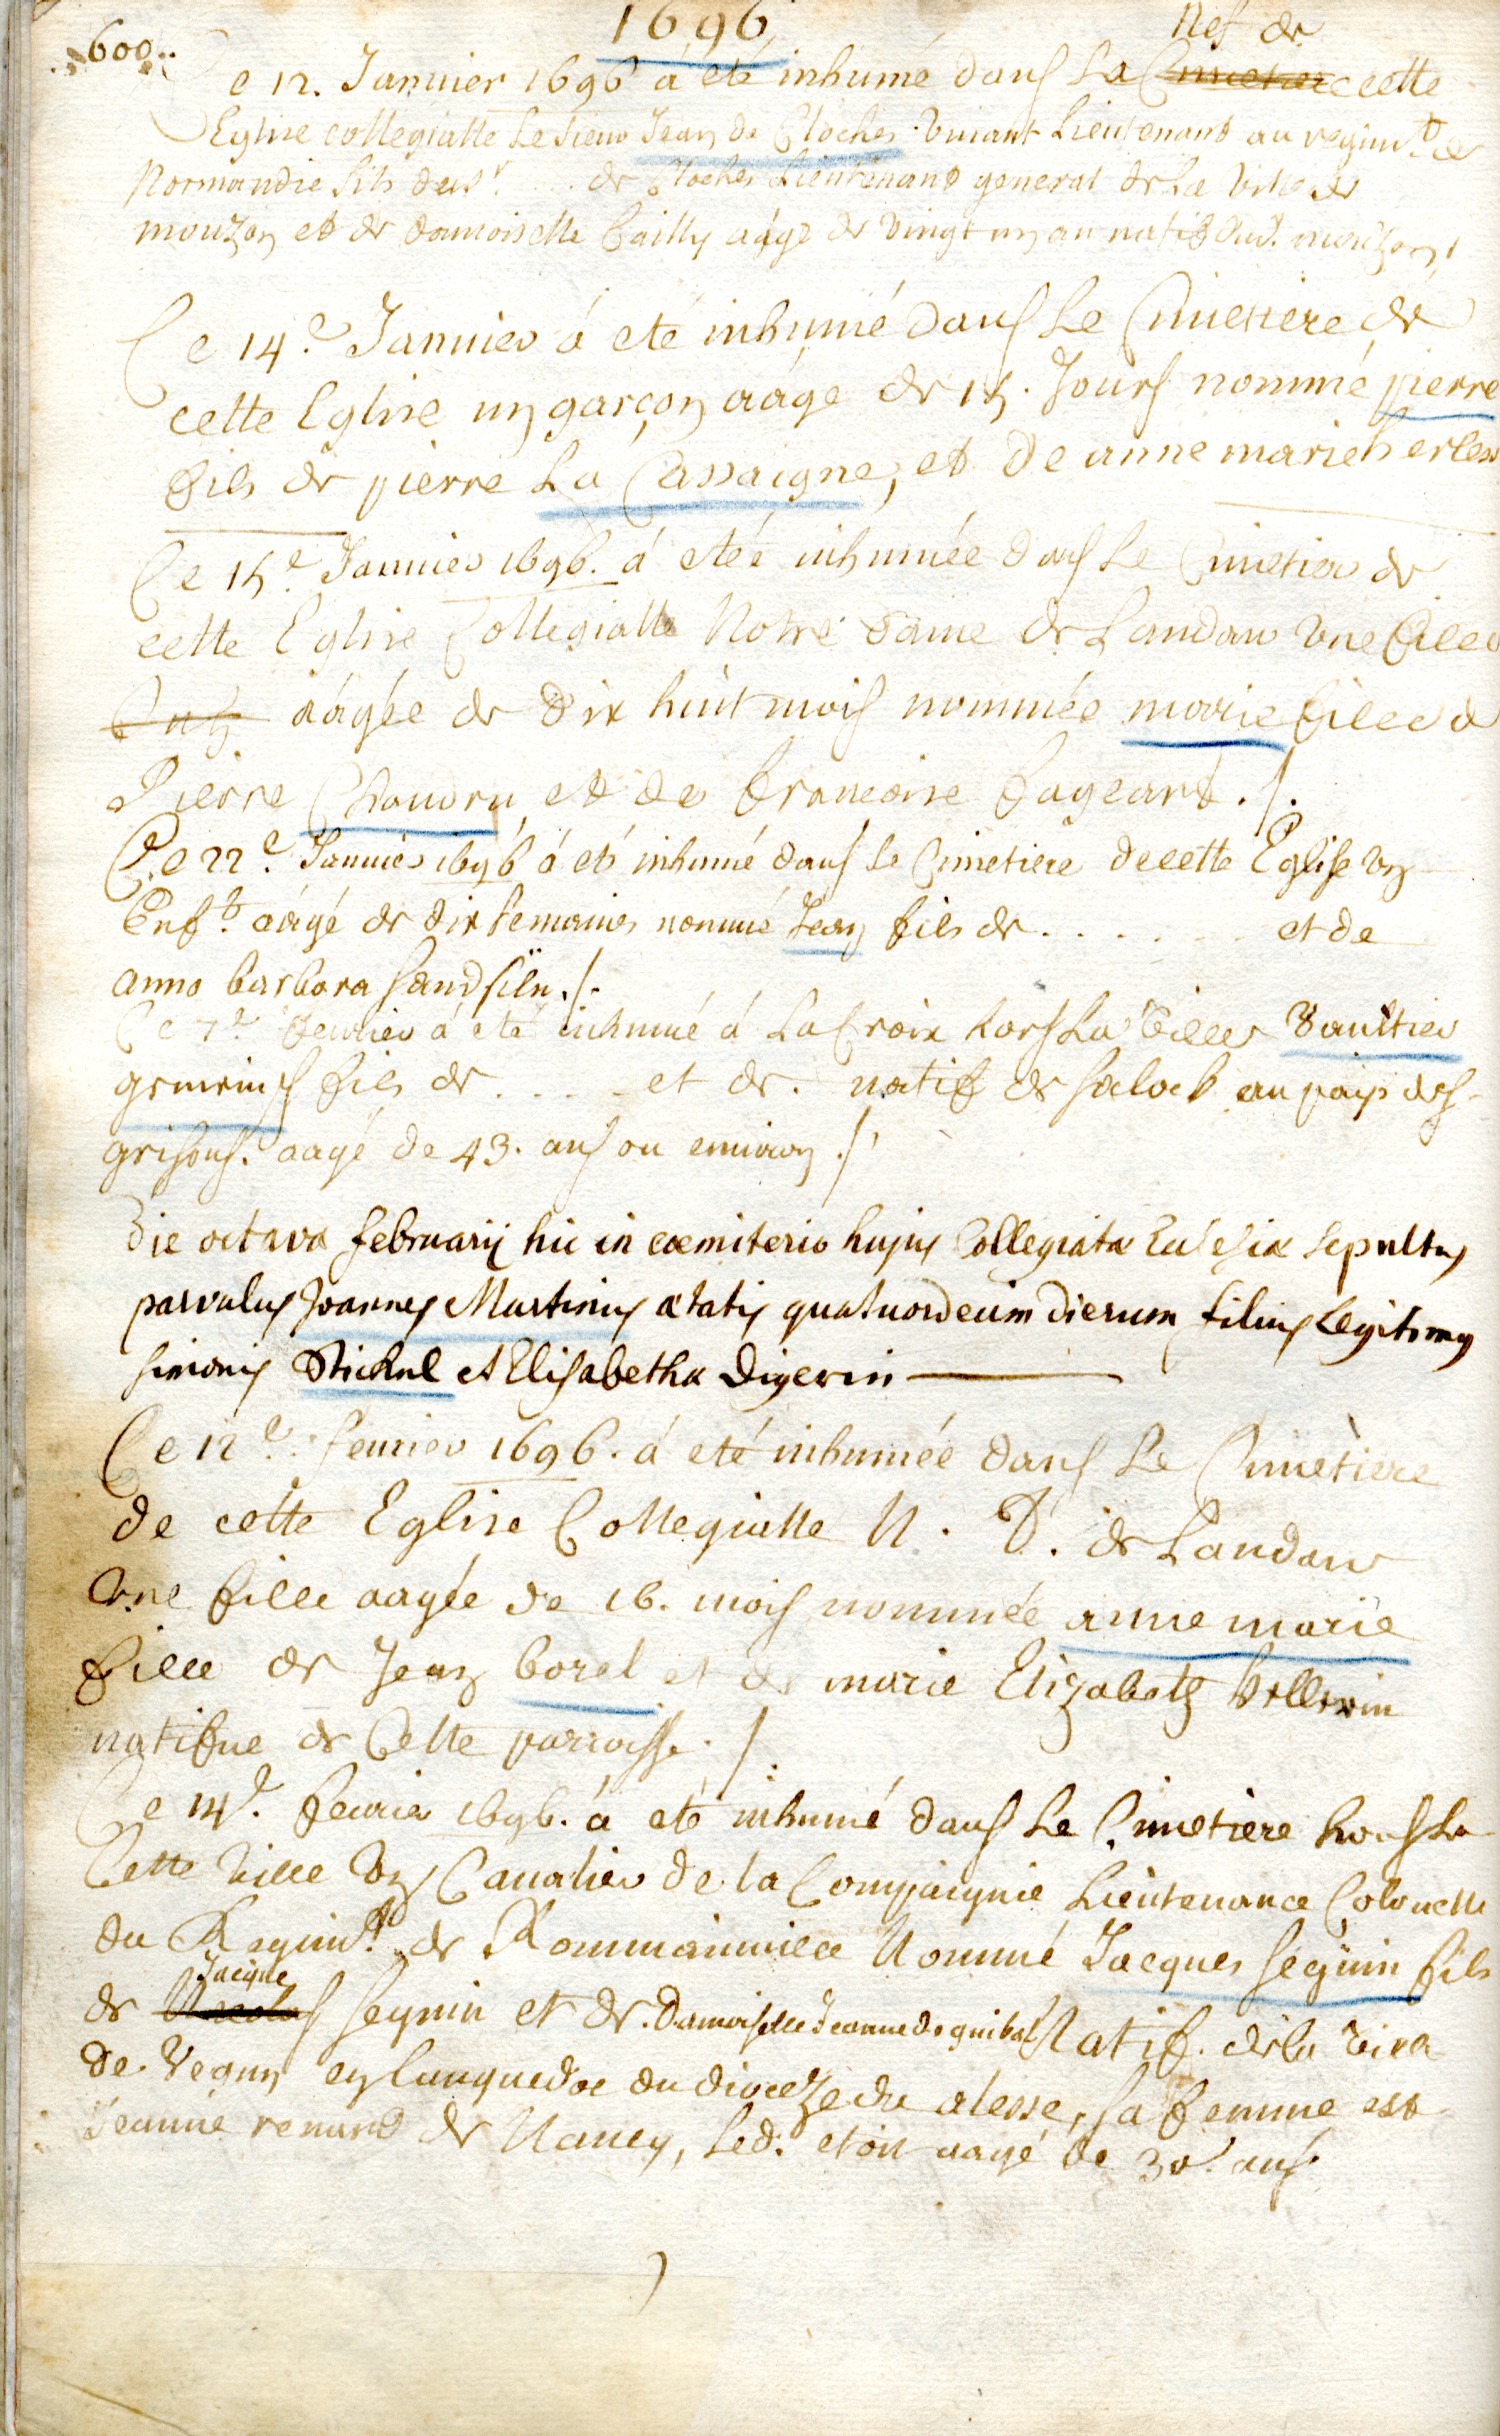 600
1696
Nef de
Ce 12. Januier 1696 á eté inhumé dans La Cimetiere cette
Eglise collegiatte Le sieur Jean de Cloches viuant Lieutenant au regimt. de
Normandie fils du sr. ... de Cloches Lieutenant general de La ville de
mouzon et de damoiselle Cailly aágé de vingt un an natif dud. mouzon
Ce 14e. Januier á eté inhumé dans Le Cimetiere de
cette Eglise un garçon aágé de 15. Jours nommé pierre
fils de pierre La Cassaigne, et de anne marie herles
Ce 15e. Januier 1696. á eteé inhumée dans Le Cimetier de
cette Eglise Collegiatte Notre dame de Landau vne fille
aágée de dix huit mois nommée marie fille de
Pierre Chaudru et de francoise fageard ./.
Ce 22e. Januier 1696 á eté inhumé dans Le Cimetiere de cette Eglise vn
Enft. aágé de dix semaines nommé Jean fils de . . . . . et de
anna barbara handsiln ./.
Ce 7e feurier á eté inhumé á La Croix hors La ville vaultier
fils de . . . . et de . natif de au pais des
grisons. aagé de 43. ans ou enuiron ./.
Die octava februarij hic in cœmiterio hujus Collegiatæ Ecclesiæ sepultus
parvulus Joannes Martinus ætatis quatuordecim dierum filius Legitimus
simonis Stickel et Elisabethæ Digerin
Ce 12e. feurier 1696. á eté inhumée dans Le Cimetiere
de cette Eglise Collegiatte N. D. de Landau
vne fille aagée de 16. mois nommée anne marie
fille de Jean borel et de marie Elizabetz
natifue de Cette parroisse ./.
Ce 14e. feurier 1696. á eté inhumé dans Le Cimetiere hors La
Cette ville vn Caualier de la Compaignie Lieutenance Colonelle
du Regimt. de Rommainuille Nommé Jacques séguin fils
Jacque
de Nicolas seguin et de Damoiselle Jeanne de guibal Natif. de la ville
de en Languedoc du diocèze de alesse, sa femme est
Jeanne renard de Nancy, Led. etoit aagé de 30. ans.